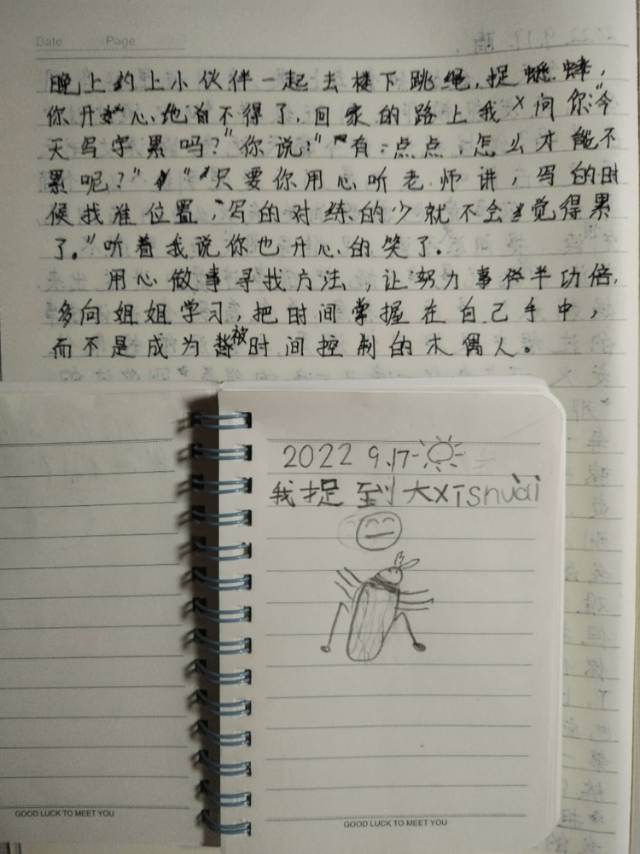 Date Page
晚上约上小伙伴一起去楼下跳绳,捉蟋蟀,
你开心地首不得了,回家的路上我问你:"今
天写字累吗?"你说:"有一点点,怎么才能不
累呢?""只要你用心听老师讲,写的时
候找准位置,写的对练的少就不会觉得累
了。"听着我说你也开心的笑了。
用心做事寻找方法,让努力事半功倍,
多向姐姐学习,把时间掌握在自己手中,
而不是成为被时间控制的木偶人。
2022 9.17
我捉到大xīshuài
GOOD LUCK TO MEET YOU
GOOD LUCK TO MEET YOU